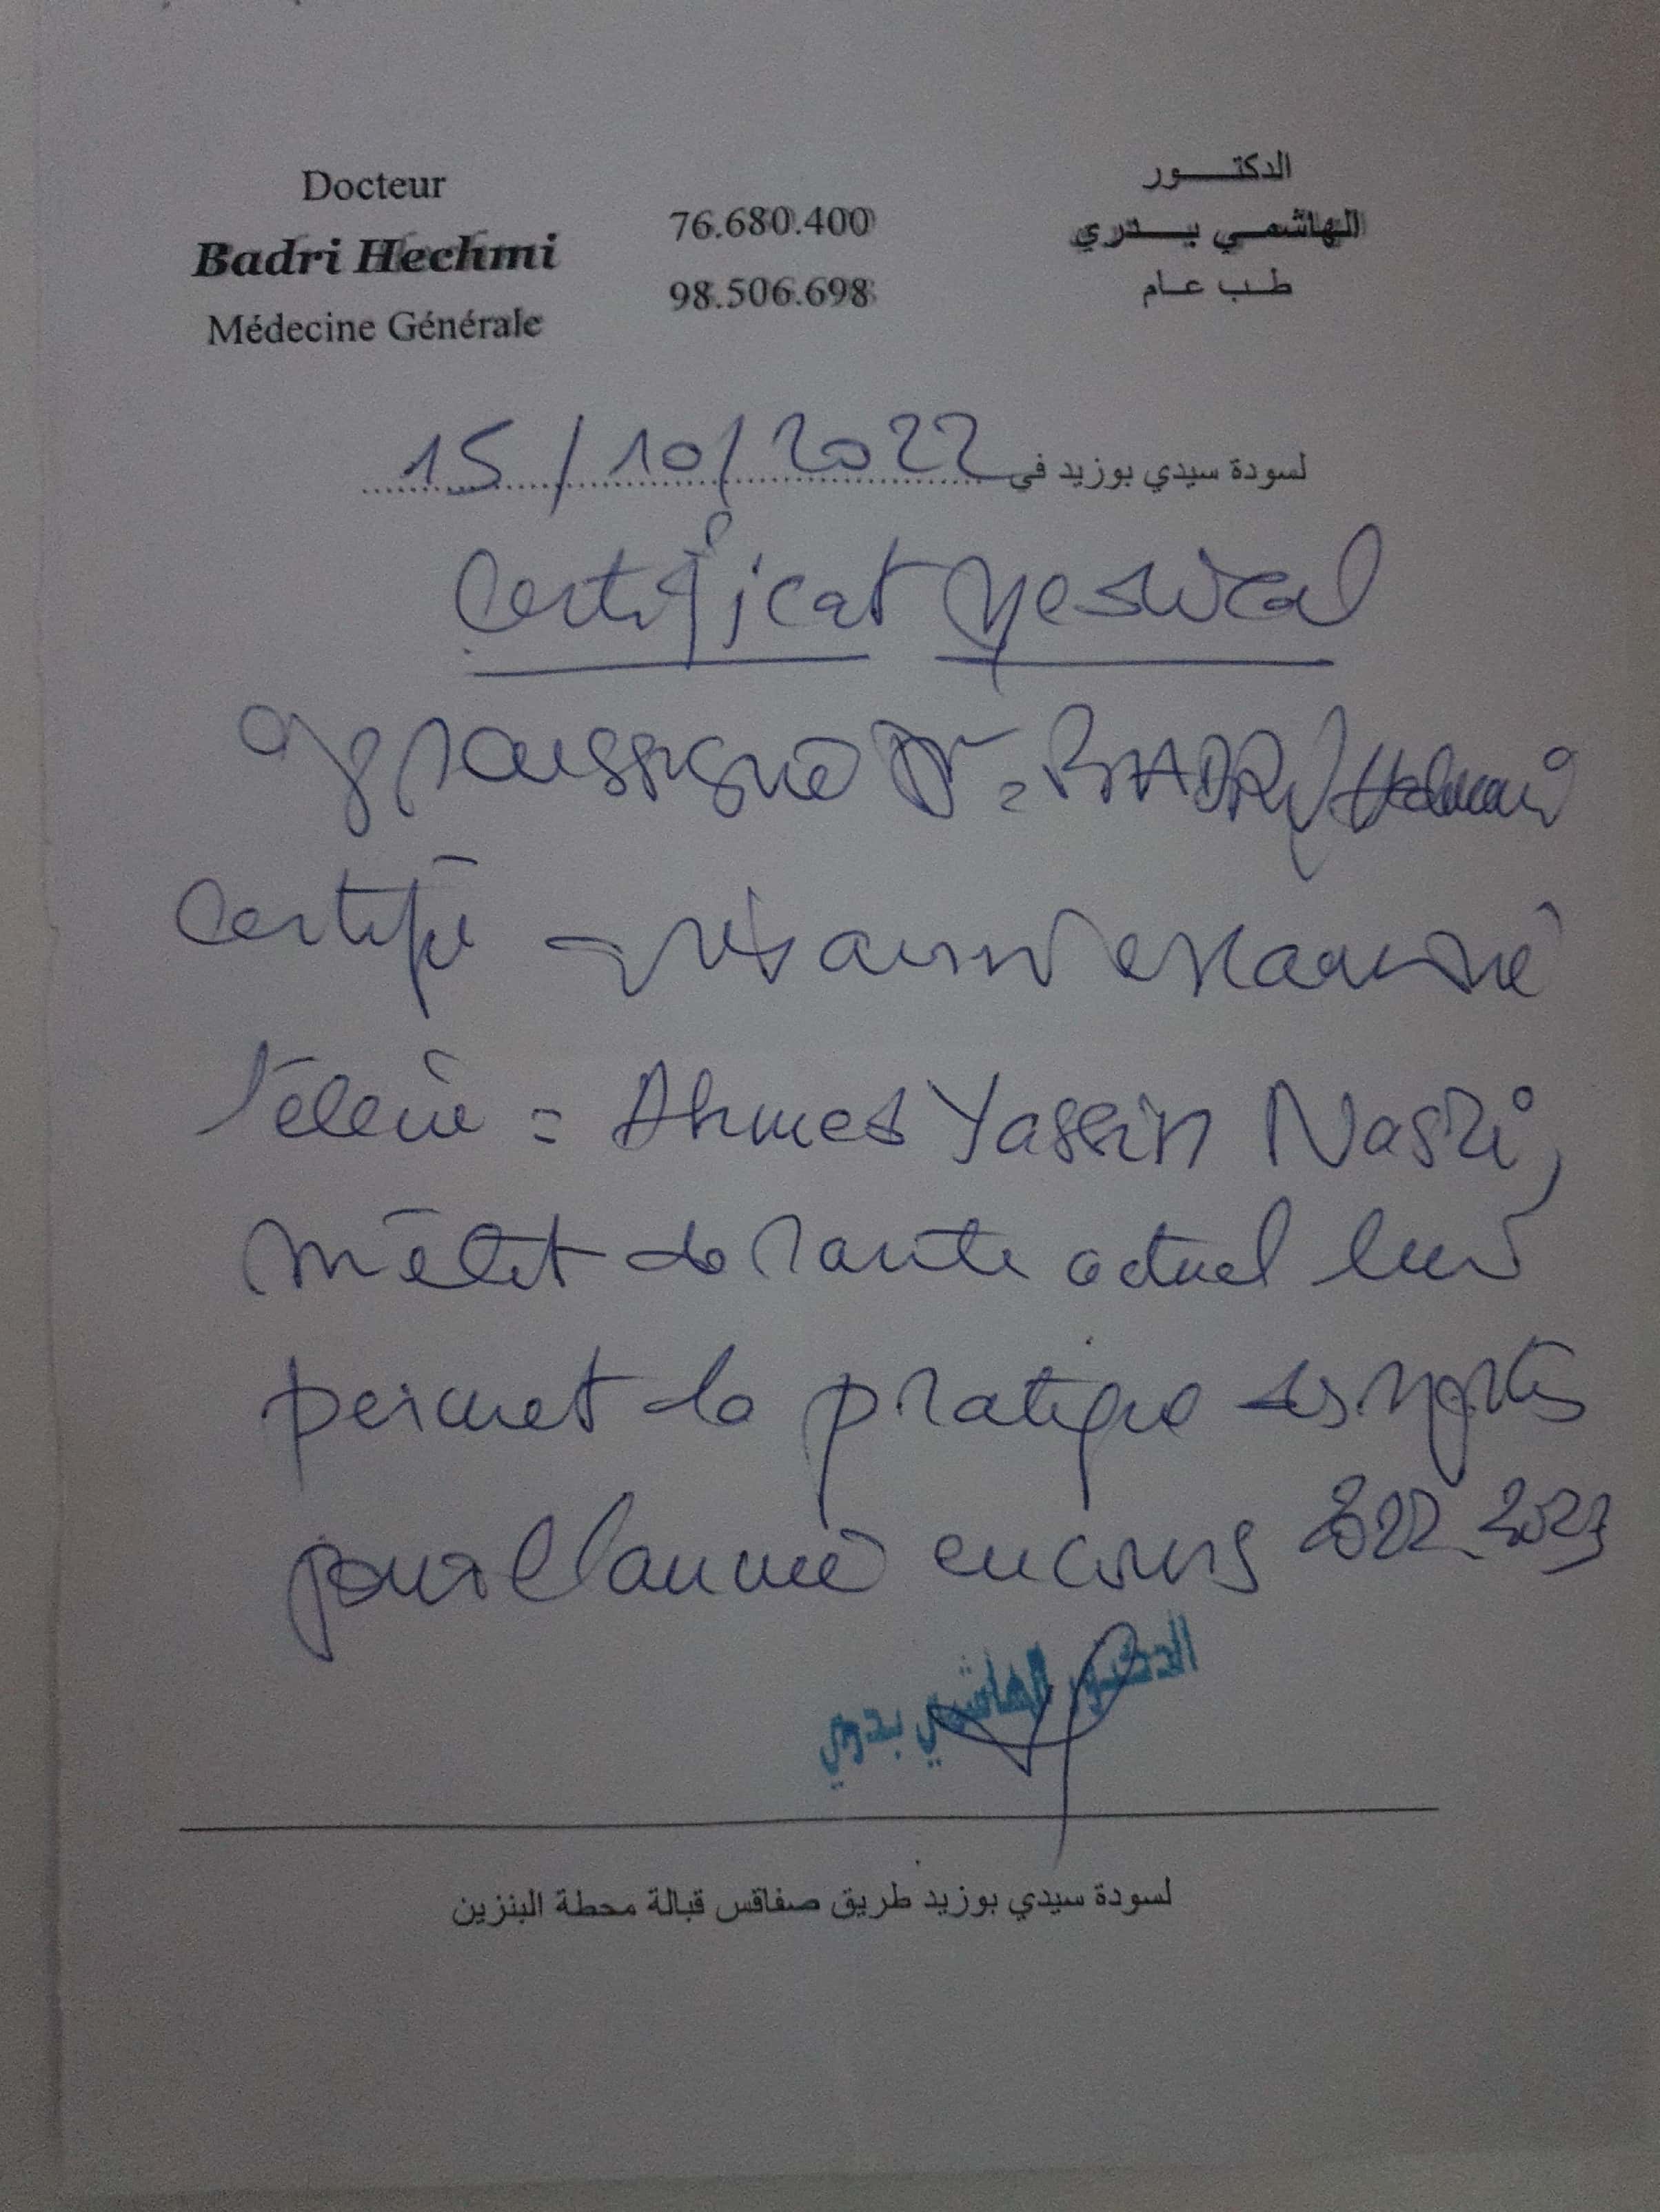 Docteur
Badri Hechmi
Médecine Générale
76.680.400
98.506.698
الدكتـــــور
الهاشمـــي بـــــدري
طـــب عـــام
لسودة سيدي بوزيد في 15/10/2022
Certificat Medical
Je soussigné Dr = BADRI Hechmi
certifie avoir examiné
l'élève = Ahmed Yassin Nasri,
état de santé actuel lui
permet la pratique des sports
pour l'année en cours 2022-2023
الدكتور الهاشمي بدري
لسودة سيدي بوزيد طريق صفاقس قبالة محطة البنزين